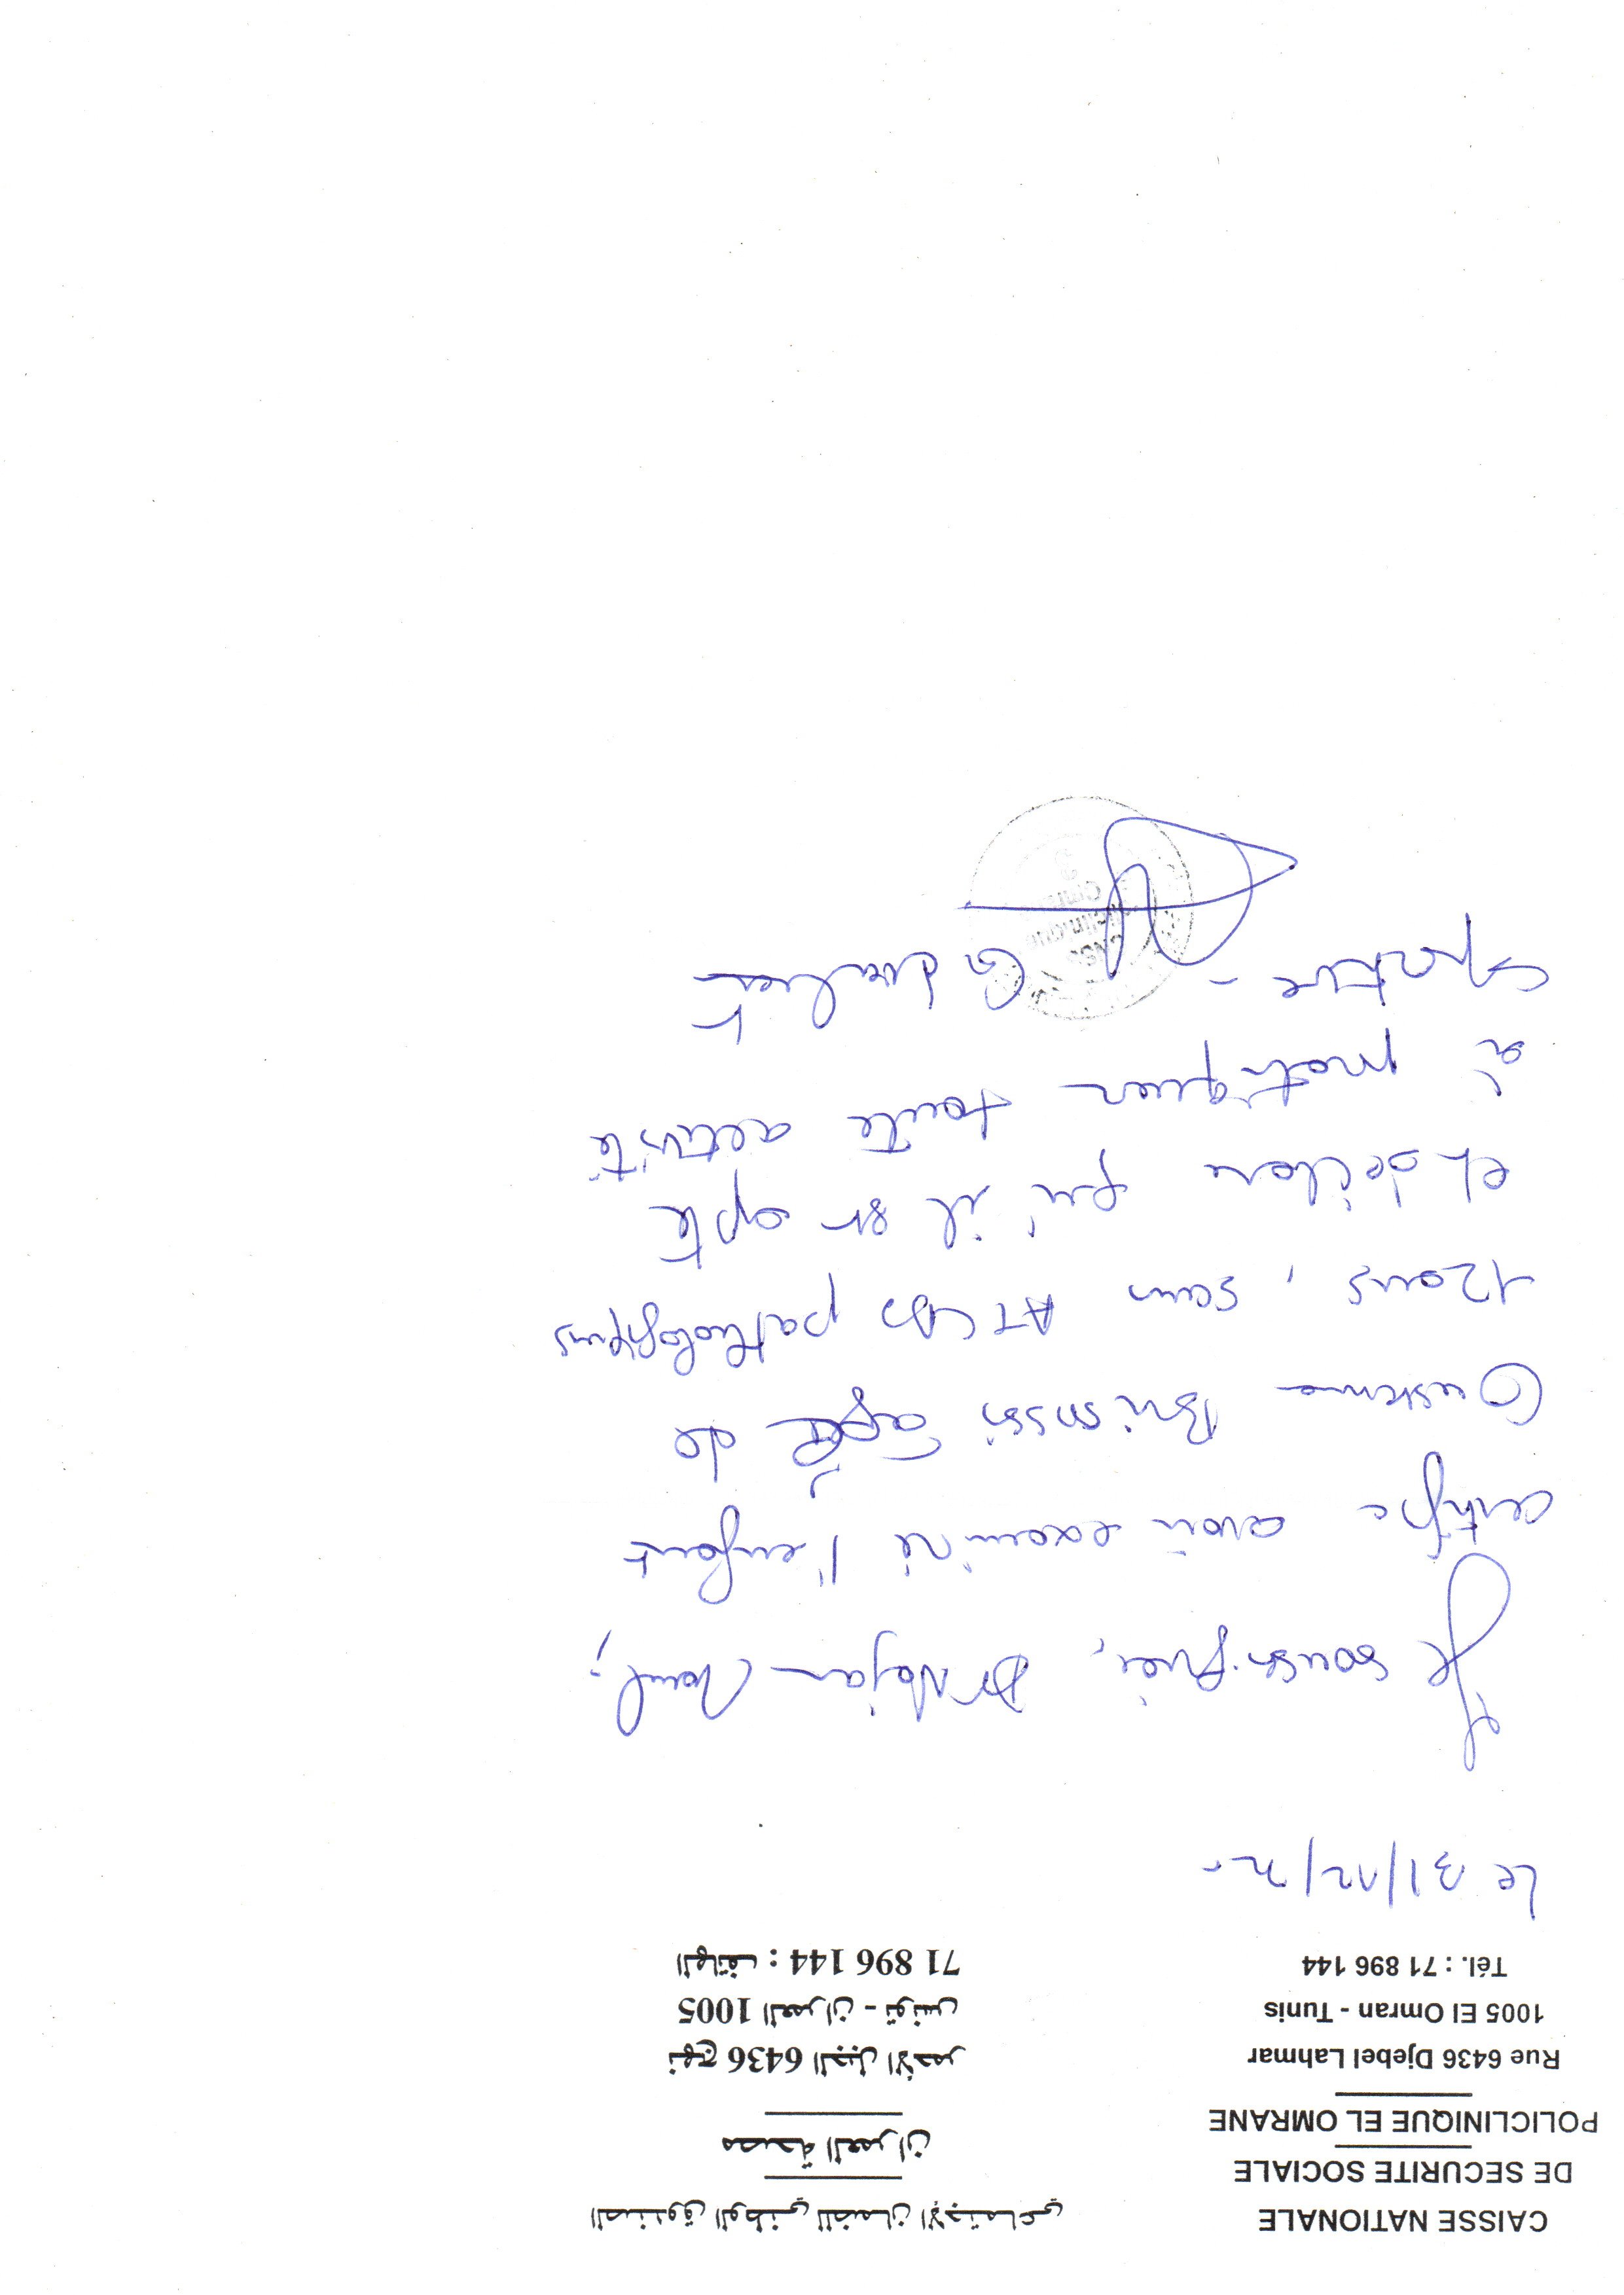 CAISSE NATIONALE
DE SECURITE SOCIALE
POLICLINIQUE EL OMRANE
Rue 6436 Djebel Lahmar
1005 El Omran - Tunis
Tél. : 71 896 144
الصندوق الوطني للضمان الإجتماعي
مصحة العمران
نهج 6436 الجبل الأحمر
1005 العمران - تونس
الهاتف : 71 896 144
Le 31/12/
Je soussigné, Dr
certifie avoir examiné l'enfant
Oussema agé de
12 ans, sans ATCD pathologiques
et déclare qu'il est apte
à pratiquer toute activité
sportive -